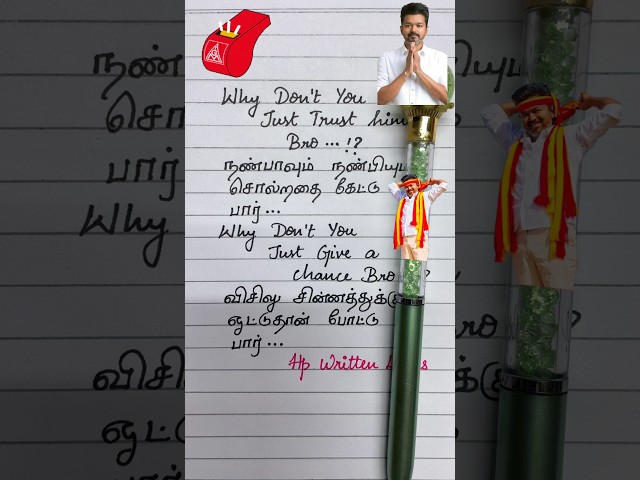 Why Don't You
Just Trust him
Bro ...!?
நண்பாவும் நண்பியு
சொல்றதை கேட்டு
பார்...
Why Don't You
Just Give a
chance Bro
விசிலு சின்னத்துக்கு
ஓட்டுதான் போட்டு
பார்...
Hp Written